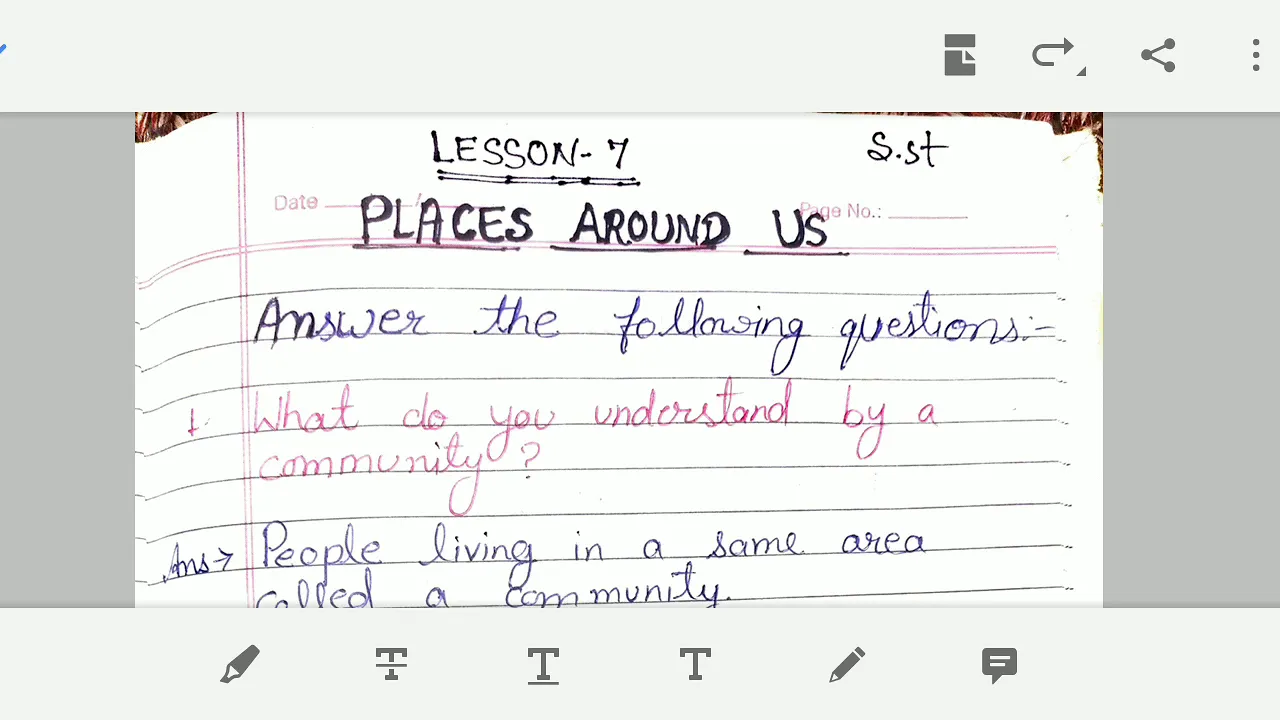 LESSON-7
S.st
Date
Page No.:
PLACES AROUND US
Answer the following questions:-
1. What do you understand by a
community?
Ans→ People living in a same area
called a community.